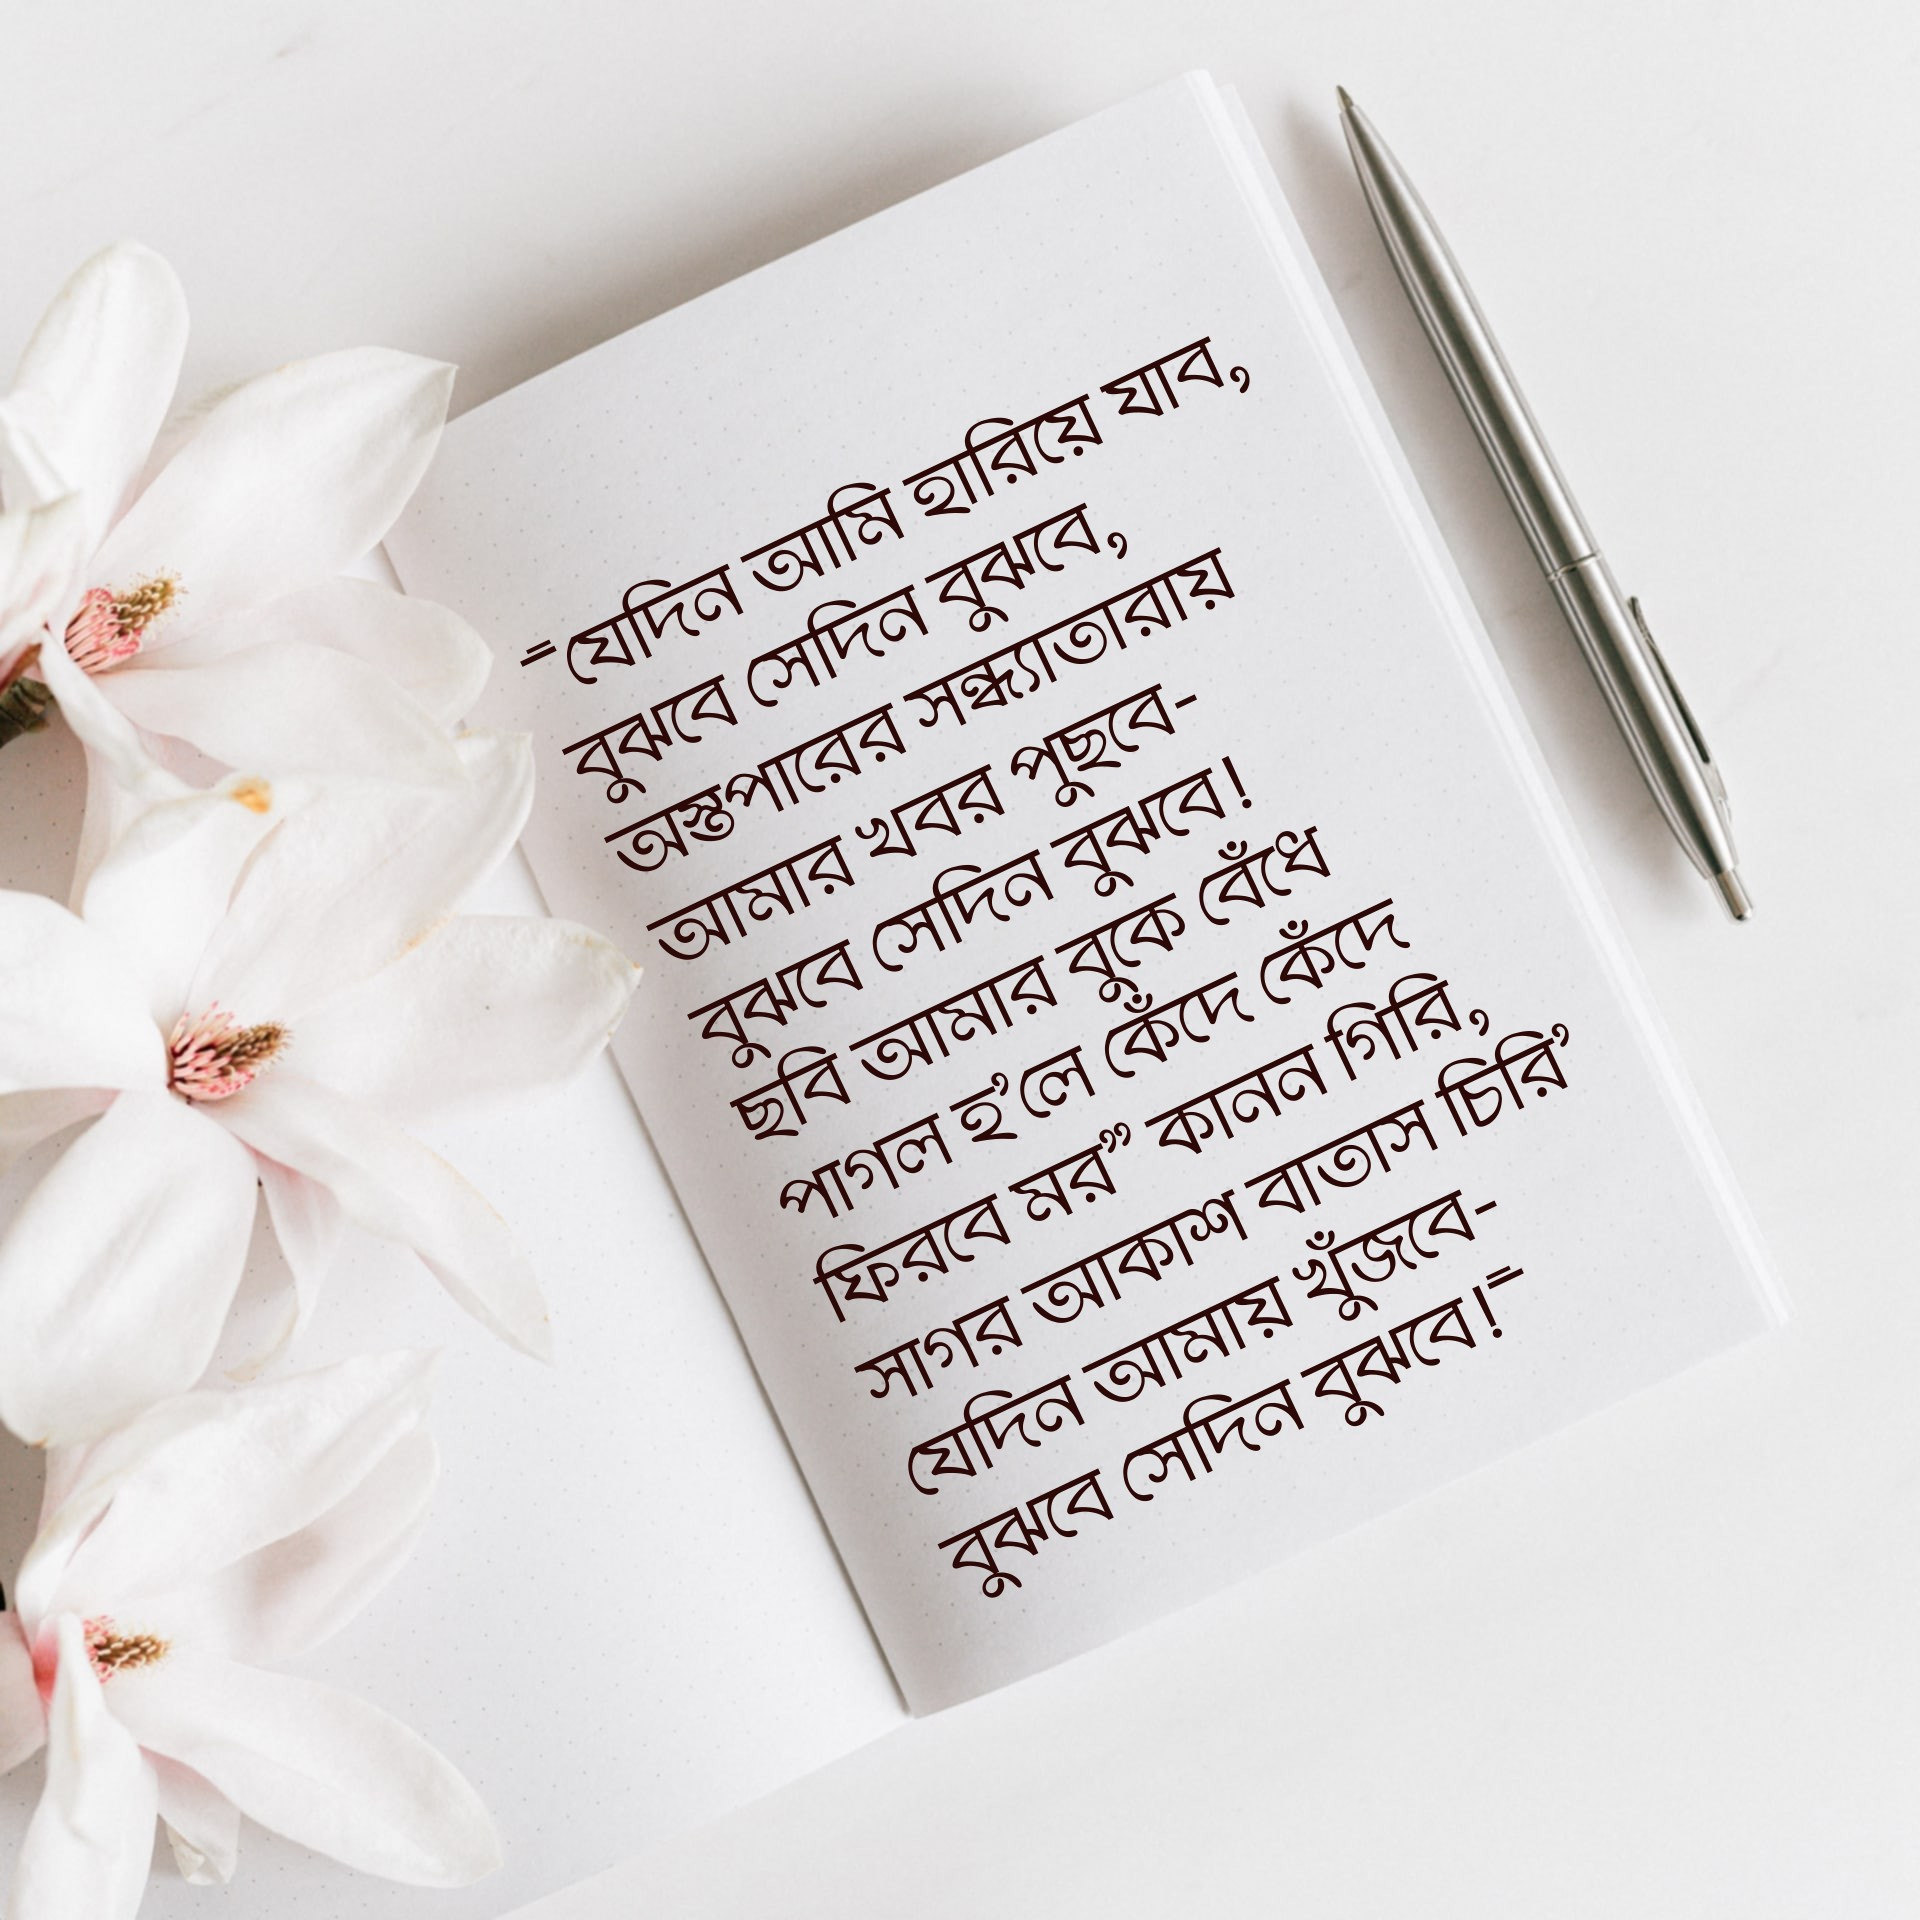 "যেদিন আমি হারিয়ে যাব,
বুঝবে সেদিন বুঝবে,
অস্তপারের সন্ধ্যাতারায়
আমার খবর পুছবে-
বুঝবে সেদিন বুঝবে!
ছবি আমার বুকে বেঁধে
পাগল হ’লে কেঁদে কেঁদে
ফিরবে মর” কানন গিরি,
সাগর আকাশ বাতাস চিরি’
যেদিন আমায় খুঁজবে-
বুঝবে সেদিন বুঝবে!"